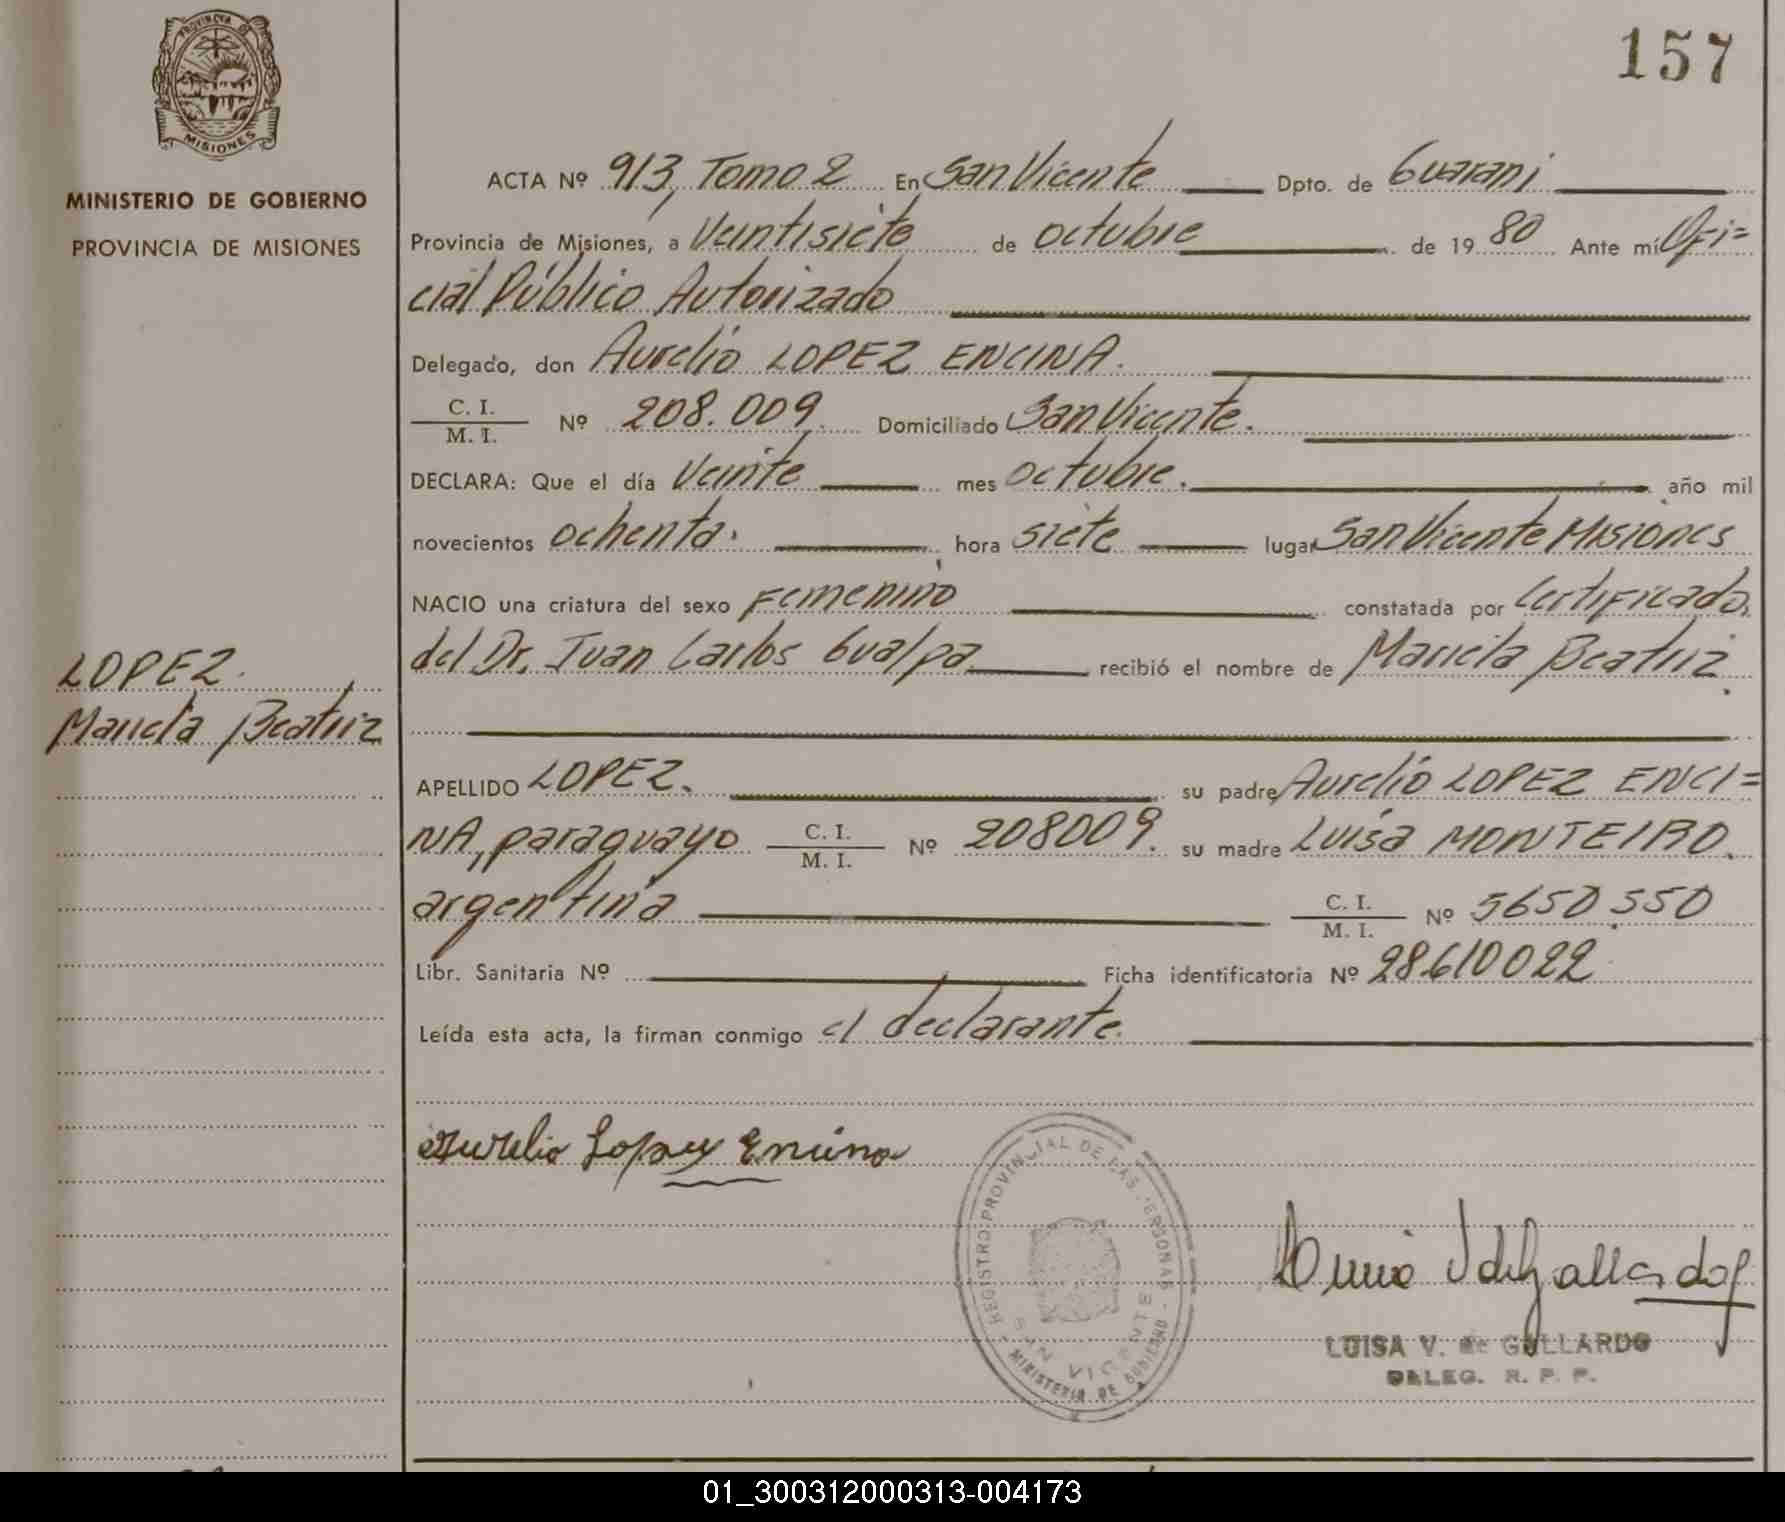 157
PROVINCIA DE
MISIONES
MINISTERIO DE GOBIERNO
PROVINCIA DE MISIONES
LOPEZ.
Mariela Beatriz
ACTA Nº 913, Tomo 2 En San Vicente Dpto. de Guarani
Provincia de Misiones, a Veintisiete de octubre de 1980 Ante mí Ofi=
cial Público Autorizado
Delegado, don Aurelio LOPEZ ENCINA.
C. I. / M. I. Nº 208.009. Domiciliado San Vicente.
DECLARA: Que el día Veinte mes octubre. año mil
novecientos ochenta. hora siete lugar San Vicente Misiones
NACIO una criatura del sexo Femenino constatada por Certificado.
del Dr. Juan Carlos Gualpa recibió el nombre de Mariela Beatriz.
APELLIDO LOPEZ. su padre Aurelio LOPEZ ENCI=
NA, paraguayo C. I. / M. I. Nº 208009. su madre Luisa MONTEIRO.
argentina C. I. / M. I. Nº 5650.550
Libr. Sanitaria Nº Ficha identificatoria Nº 28.610022
Leída esta acta, la firman conmigo el declarante.
Aurelio Lopez Encina
REGISTRO PROVINCIAL DE LAS PERSONAS
SAN VICENTE
MINISTERIO DE GOBIERNO
LUISA V. de GALLARDO
DELEG. R. P. P.
01_300312000313-004173